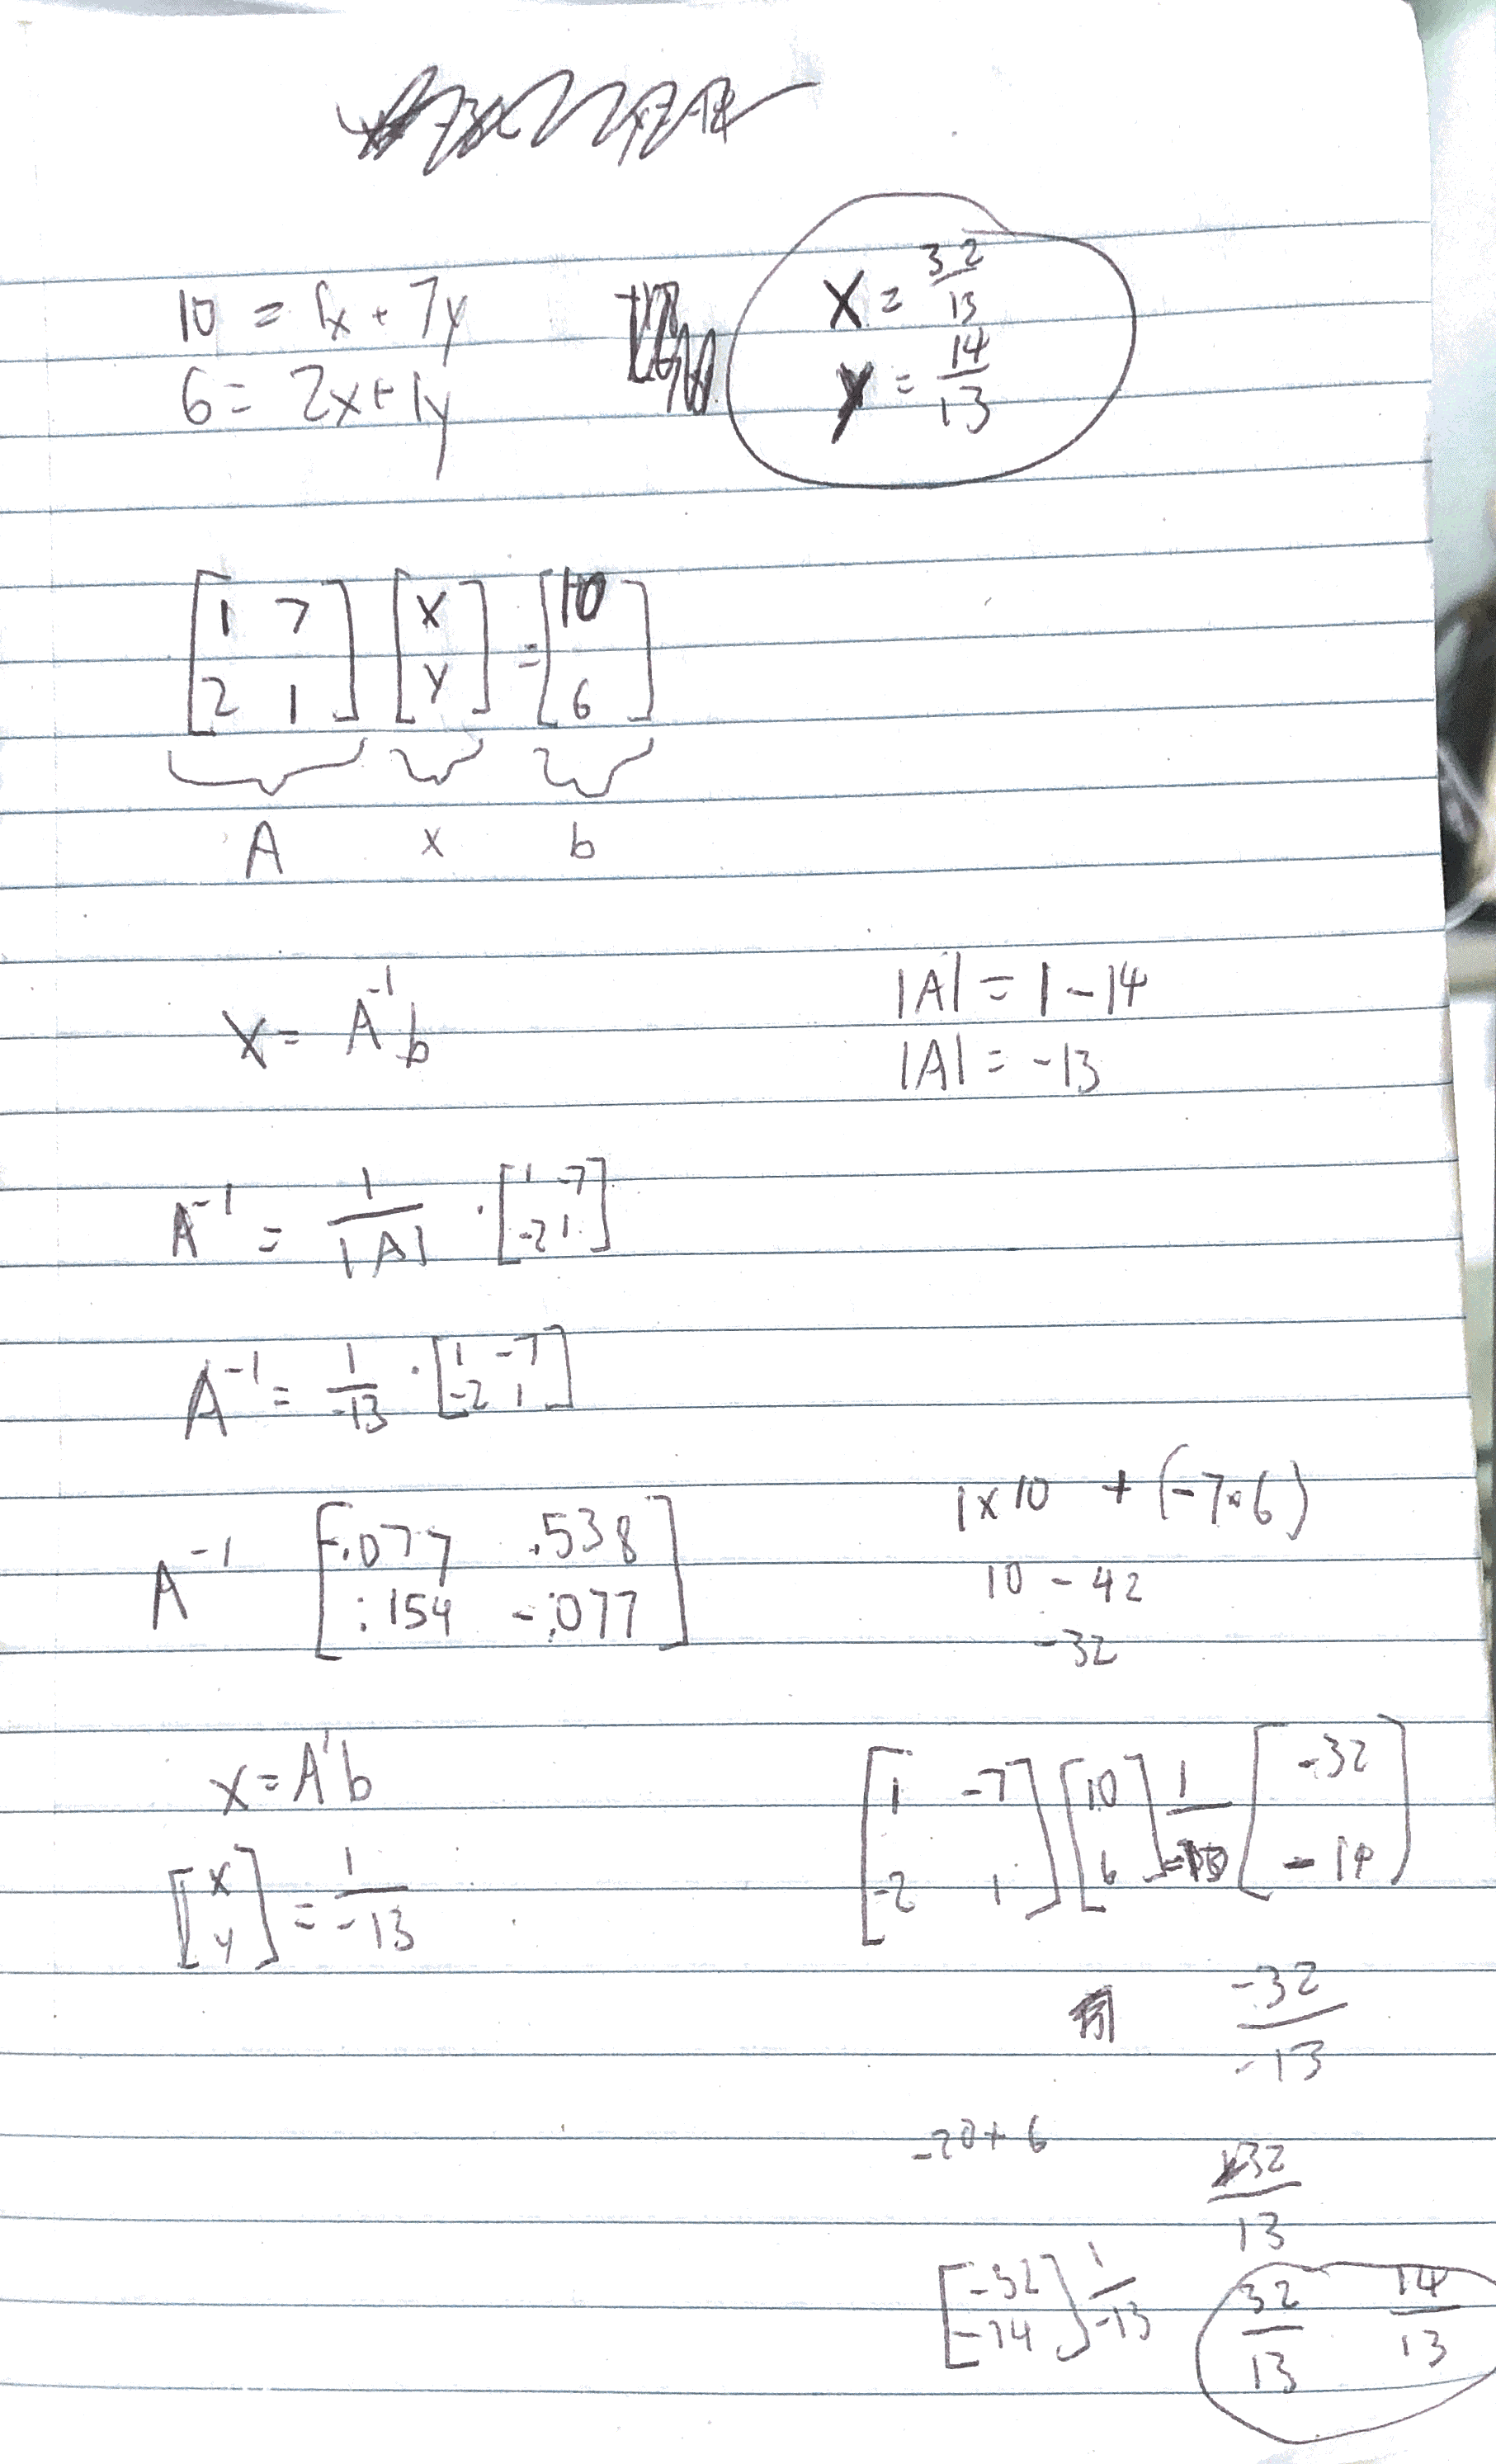 10 = 1x + 7y
6 = 2x + 1y
x = 32/13
y = 14/13
[1 7; 2 1] [x; y] = [10; 6]
A x b
x = A^-1 b
|A| = 1 - 14
|A| = -13
A^-1 = 1/|A| · [1 -7; -2 1]
A^-1 = 1/-13 · [1 -7; -2 1]
A^-1 [-.077 .538; .154 -.077]
1 x 10 + (-7·6)
10 - 42
-32
x = A^-1 b
[x; y] = 1/-13
[1 -7; -2 1] [10; 6] 1/-13 [-32; -14]
-32/-13
-20 + 6
32/13
[-32; -14] 1/-13
32/13 14/13